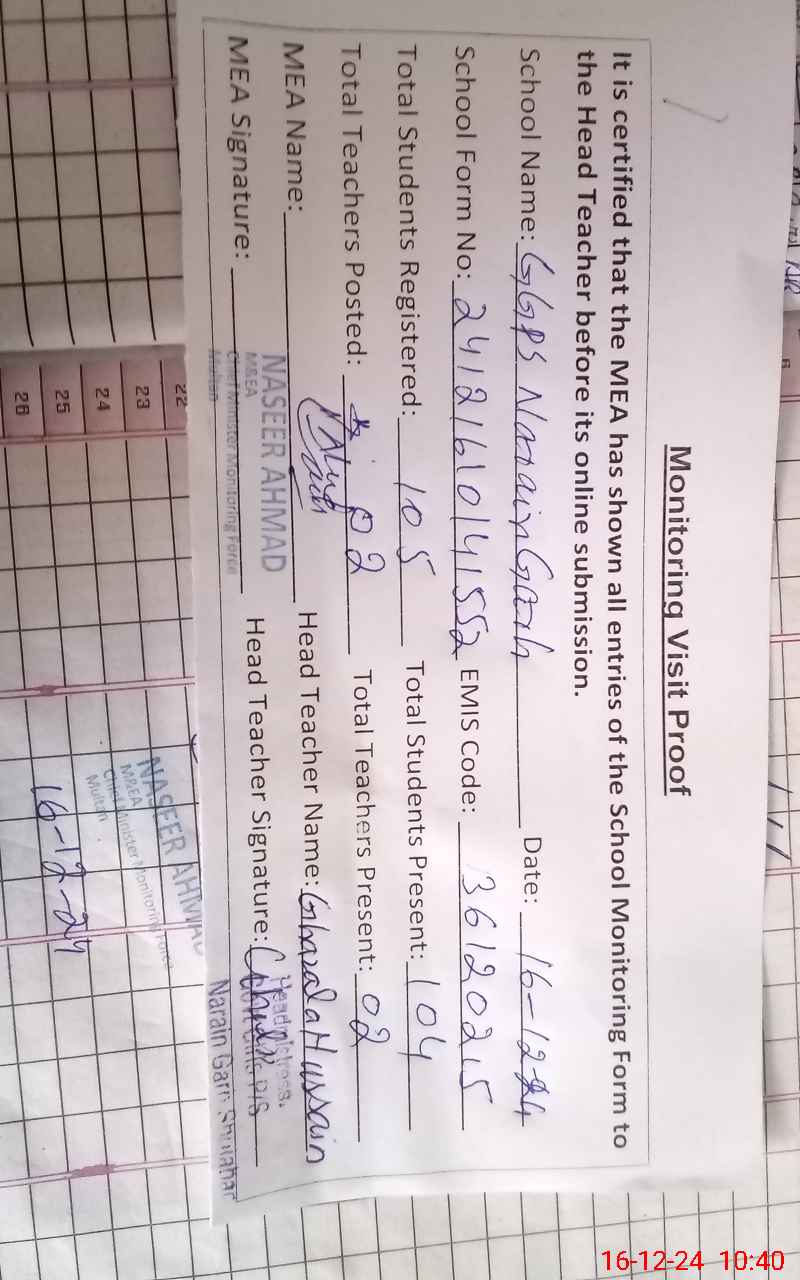 Monitoring Visit Proof
It is certified that the MEA has shown all entries of the School Monitoring Form to
the Head Teacher before its online submission.
School Name: GGPS Narain Garh Date: 16-12-24
School Form No: 24121610141552 EMIS Code: 36120215
Total Students Registered: 105 Total Students Present: 104
Total Teachers Posted: 02 Total Teachers Present: 02
MEA Name: NASEER AHMAD Head Teacher Name: Ghazala Hussain
M&EA
MEA Signature: Head Teacher Signature:
Chief Minister Monitoring Force
Multan
Headmistress.
Narain Garh Shujabad
22
23
24
25
26
NASEER AHMAD
M&EA
Chief Minister Monitoring Force
Multan
16-12-24
16-12-24 10:40